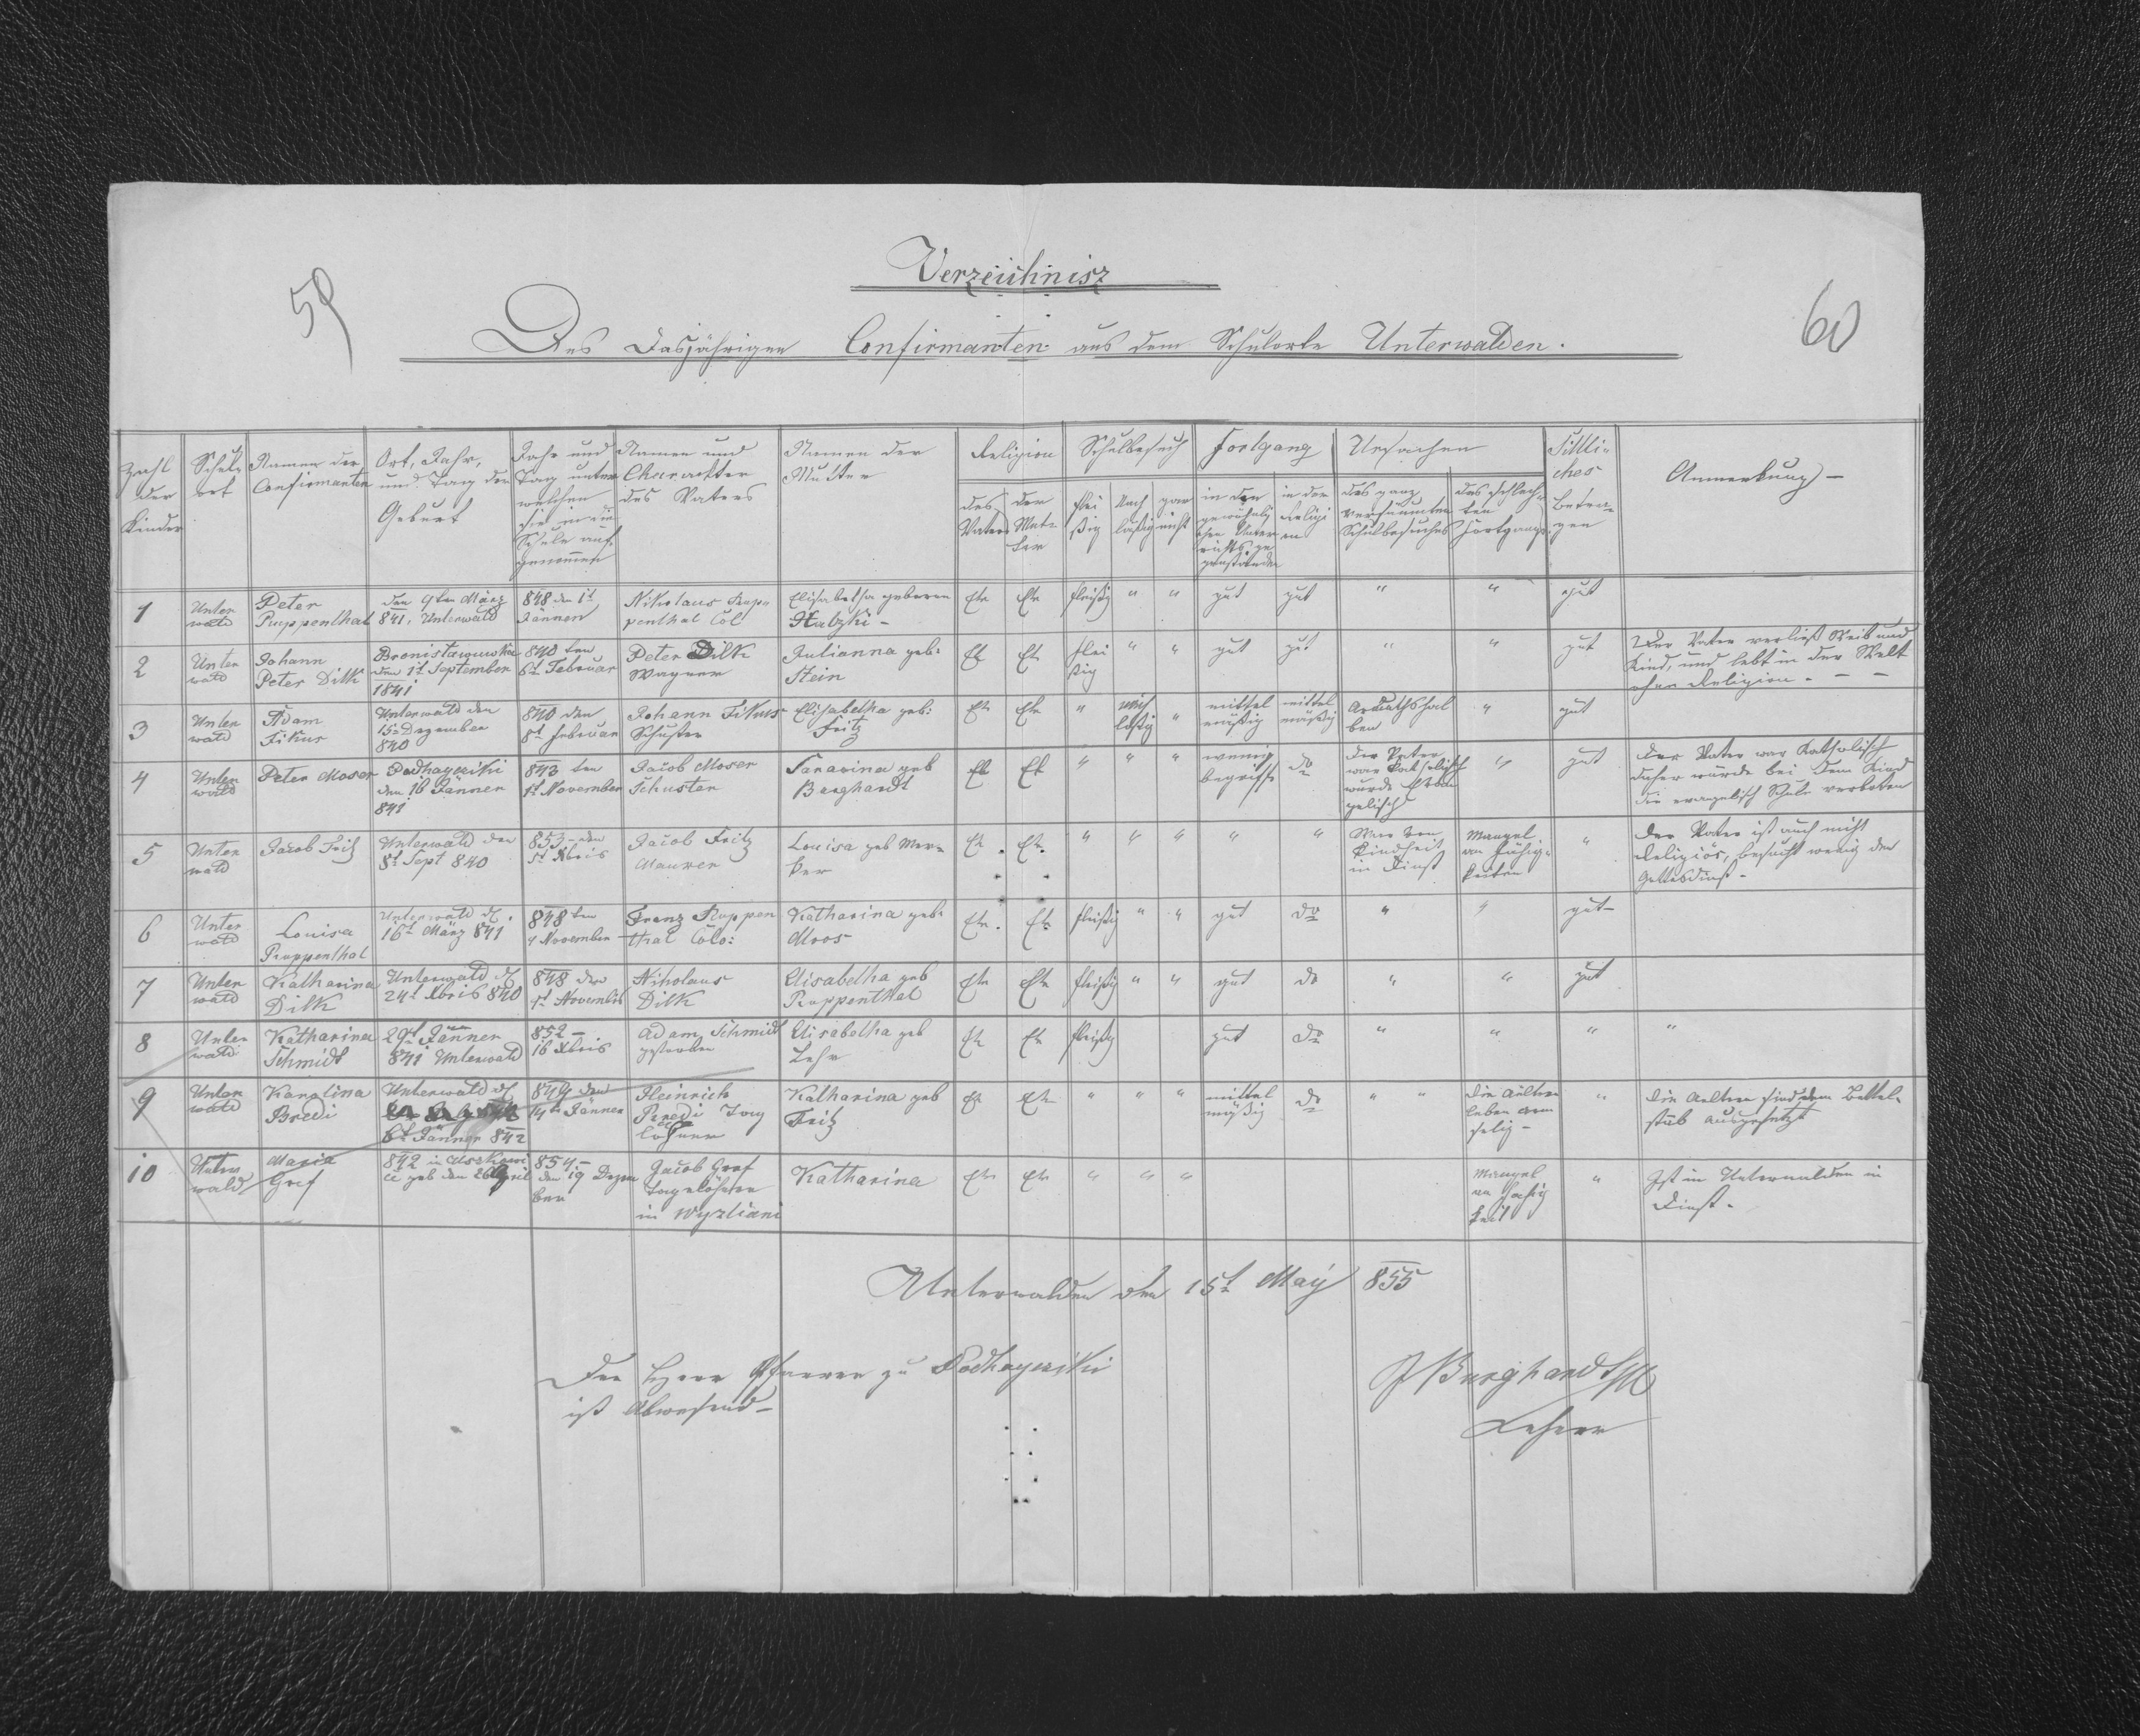 59
60
Verzeichnisz
Des dasjährigen Confirmanten aus dem Schulorte Unterwalden.
Zahl der Kinder
Schulort
Namen der Confirmanten
Ort, Jahr, und Tag der Geburt
Jahr und Tag unter welchen sie in die Schule aufgenommen
Namen und Charackter des Vaters
Namen der Mutter
Religion
des Vaters
der Mutter
Schulbesuch
fleißig
Nachläßig
gar nicht
Fortgang
in den gewöhnlichen Unterrichtsgegenständen
in der Religion
Ursachen
des ganz versäumten Schulbesuches
des schlechten Fortgangs
Sittliches Betragen
Anmerkung –
1 Unterwald Peter Ruppenthal den 9ten März 841, Unterwald 848 den 1t Jänner Nikolaus Ruppenthal Col Elisabetha geboren Halzki - Ev Ev fleißig " " gut gut " " gut
2 Unterwald Johann Peter Dilk den 1t September 1841 840 ten 6t Februar Peter Dilk Wagner Julianna geb: Stein Ev Ev fleißig " " gut gut " " gut Der Vater verließ Weib und Kind, und lebt in der Welt ohne Religion. – –
3 Unterwald Adam Fikus Unterwald den 15t Dezember 840 840 den 8t Februar Johann Fikus Schuster Elisabetha geb: Fritz Ev Ev " nachläßig " mittelmäßig mittelmäßig Armuthshalben " gut
4 Unterwald Peter Moser Podhayeziki den 16 Jänner 841 843 ten 1t November Jacob Moser Schuster geb Burghardt Ev Ev " " " wenig begriffe do der Vater war Katholisch wurde Evangelisch " gut Der Vater war Katholisch daher wurde bei dem Kind die evangelisch Schule verboten
5 Unterwald Jacob Fritz Unterwald den 8t Sept 840 853 – den 5t Xbris Jacob Fritz Maurer Louisa geb Ev. Ev. " " " " " War von Kindheit in Dinst Mangel an Fähigkeiten " der Vater ist auch nicht Religiös, besucht wenig den Gottesdinst –
6 Unterwald Louisa Ruppenthal Unterwald d. 16t März 841 848 ten 1 November Franz Ruppenthal Colo: Katharina geb: Moos Ev. Ev fleißig " " gut do " " gut –
7 Unterwald Katharina Dilk Unterwald d. 24t Xbris 840 848 den 1t November Nikolaus Dilk Elisabetha geb Ruppenthal Ev Ev fleißig " " gut do " " gut
8 Unterwald Katharina Schmidt 29t Jänner 841 Unterwald 852 – 16 Xbris Adam Schmidt gestorben Elisabetha geb Lehr Ev Ev fleißig gut do " " " "
9 Unterwald Karolina Bredi Unterwald d. 6t Jänner 842 849 den 14t Jänner Heinrich Bredi Taglöhner Katharina geb Fritz Ev Ev " " " mittelmäßig do " " die Aeltern leben armselig – " die Aeltern sind dem Bettelstab ausgesetzt
10 Unterwald Maria Graf 842 in geb den April 854 – den 19 Dezember Jacob Graf Tagelöhner in Wyzliani Katharina Ev Ev " " " Mangel an Fähigkeit " Ist in Unterwalden in Dinst.
Unterwalden den 15t May 855
Der Herr Pfarrer zu Podhayeziki
ist Abwesend –
J Burghardt
Lehrer